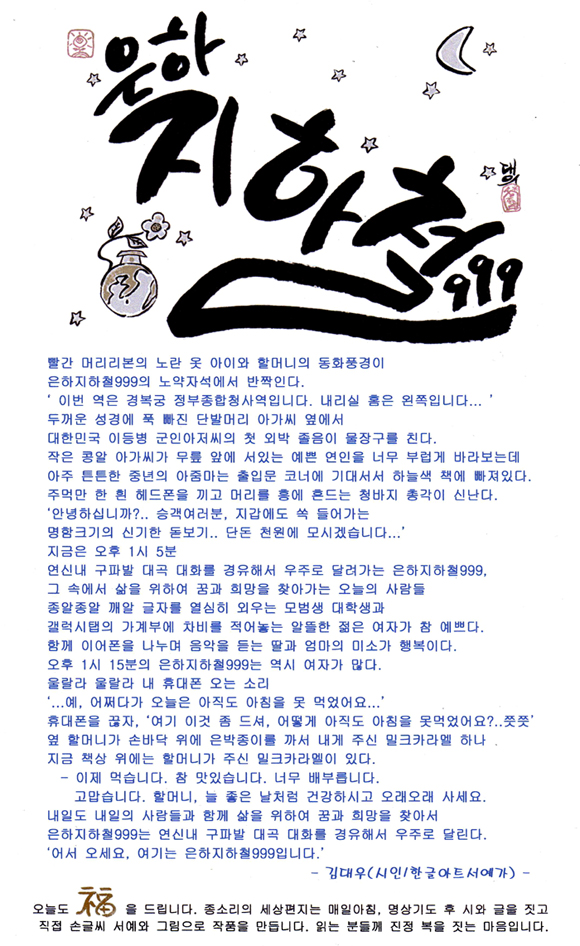 은하
지하철
999
댕
빨간 머리리본의 노란 옷 아이와 할머니의 동화풍경이
은하지하철999의 노약자석에서 반짝인다.
‘ 이번 역은 경복궁 정부종합청사역입니다. 내리실 홈은 왼쪽입니다... ’
두꺼운 성경에 푹 빠진 단발머리 아가씨 옆에서
대한민국 이등병 군인아저씨의 첫 외박 졸음이 물장구를 친다.
작은 콩알 아가씨가 무릎 앞에 서있는 예쁜 연인을 너무 부럽게 바라보는데
아주 튼튼한 중년의 아줌마는 출입문 코너에 기대서서 하늘색 책에 빠져있다.
주먹만 한 흰 헤드폰을 끼고 머리를 흥에 흔드는 청바지 총각이 신난다.
‘안녕하십니까?.. 승객여러분, 지갑에도 쏙 들어가는
명함크기의 신기한 돋보기.. 단돈 천원에 모시겠습니다...’
지금은 오후 1시 5분
연신내 구파발 대곡 대화를 경유해서 우주로 달려가는 은하지하철999,
그 속에서 삶을 위하여 꿈과 희망을 찾아가는 오늘의 사람들
종알종알 깨알 글자를 열심히 외우는 모범생 대학생과
갤럭시탭의 가계부에 차비를 적어놓는 알뜰한 젊은 여자가 참 예쁘다.
함께 이어폰을 나누며 음악을 듣는 딸과 엄마의 미소가 행복이다.
오후 1시 15분의 은하지하철999는 역시 여자가 많다.
울랄라 울랄라 내 휴대폰 오는 소리
‘...예, 어쩌다가 오늘은 아직도 아침을 못 먹었어요...’
휴대폰을 끊자, ‘여기 이것 좀 드셔, 어떻게 아직도 아침을 못먹었어요?..쯧쯧’
옆 할머니가 손바닥 위에 은박종이를 까서 내게 주신 밀크카라멜 하나
지금 책상 위에는 할머니가 주신 밀크카라멜이 있다.
– 이제 먹습니다. 참 맛있습니다. 너무 배부릅니다.
고맙습니다. 할머니, 늘 좋은 날처럼 건강하시고 오래오래 사세요.
내일도 내일의 사람들과 함께 삶을 위하여 꿈과 희망을 찾아서
은하지하철999는 연신내 구파발 대곡 대화를 경유해서 우주로 달린다.
‘어서 오세요, 여기는 은하지하철999입니다.’
- 김대우(시인/한글아트서예가) -
오늘도 福 을 드립니다. 종소리의 세상편지는 매일아침, 명상기도 후 시와 글을 짓고
직접 손글씨 서예와 그림으로 작품을 만듭니다. 읽는 분들께 진정 복을 짓는 마음입니다.